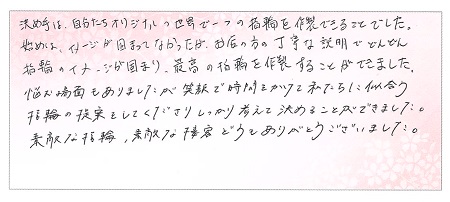 決め手は、自分たちオリジナルの世界で一つの指輪を作製できることでした。
始めは、イメージが固まってなかったが、お店の方の丁寧な説明でどんどん
指輪のイメージが固まり、最高の指輪を作製することができました。
悩む場面もありましたが笑顔で時間をかけて私たちに似合う
指輪の提案をしてくださりしっかり考えて決めることができました。
素敵な指輪、素敵な接客どうもありがとうございました。